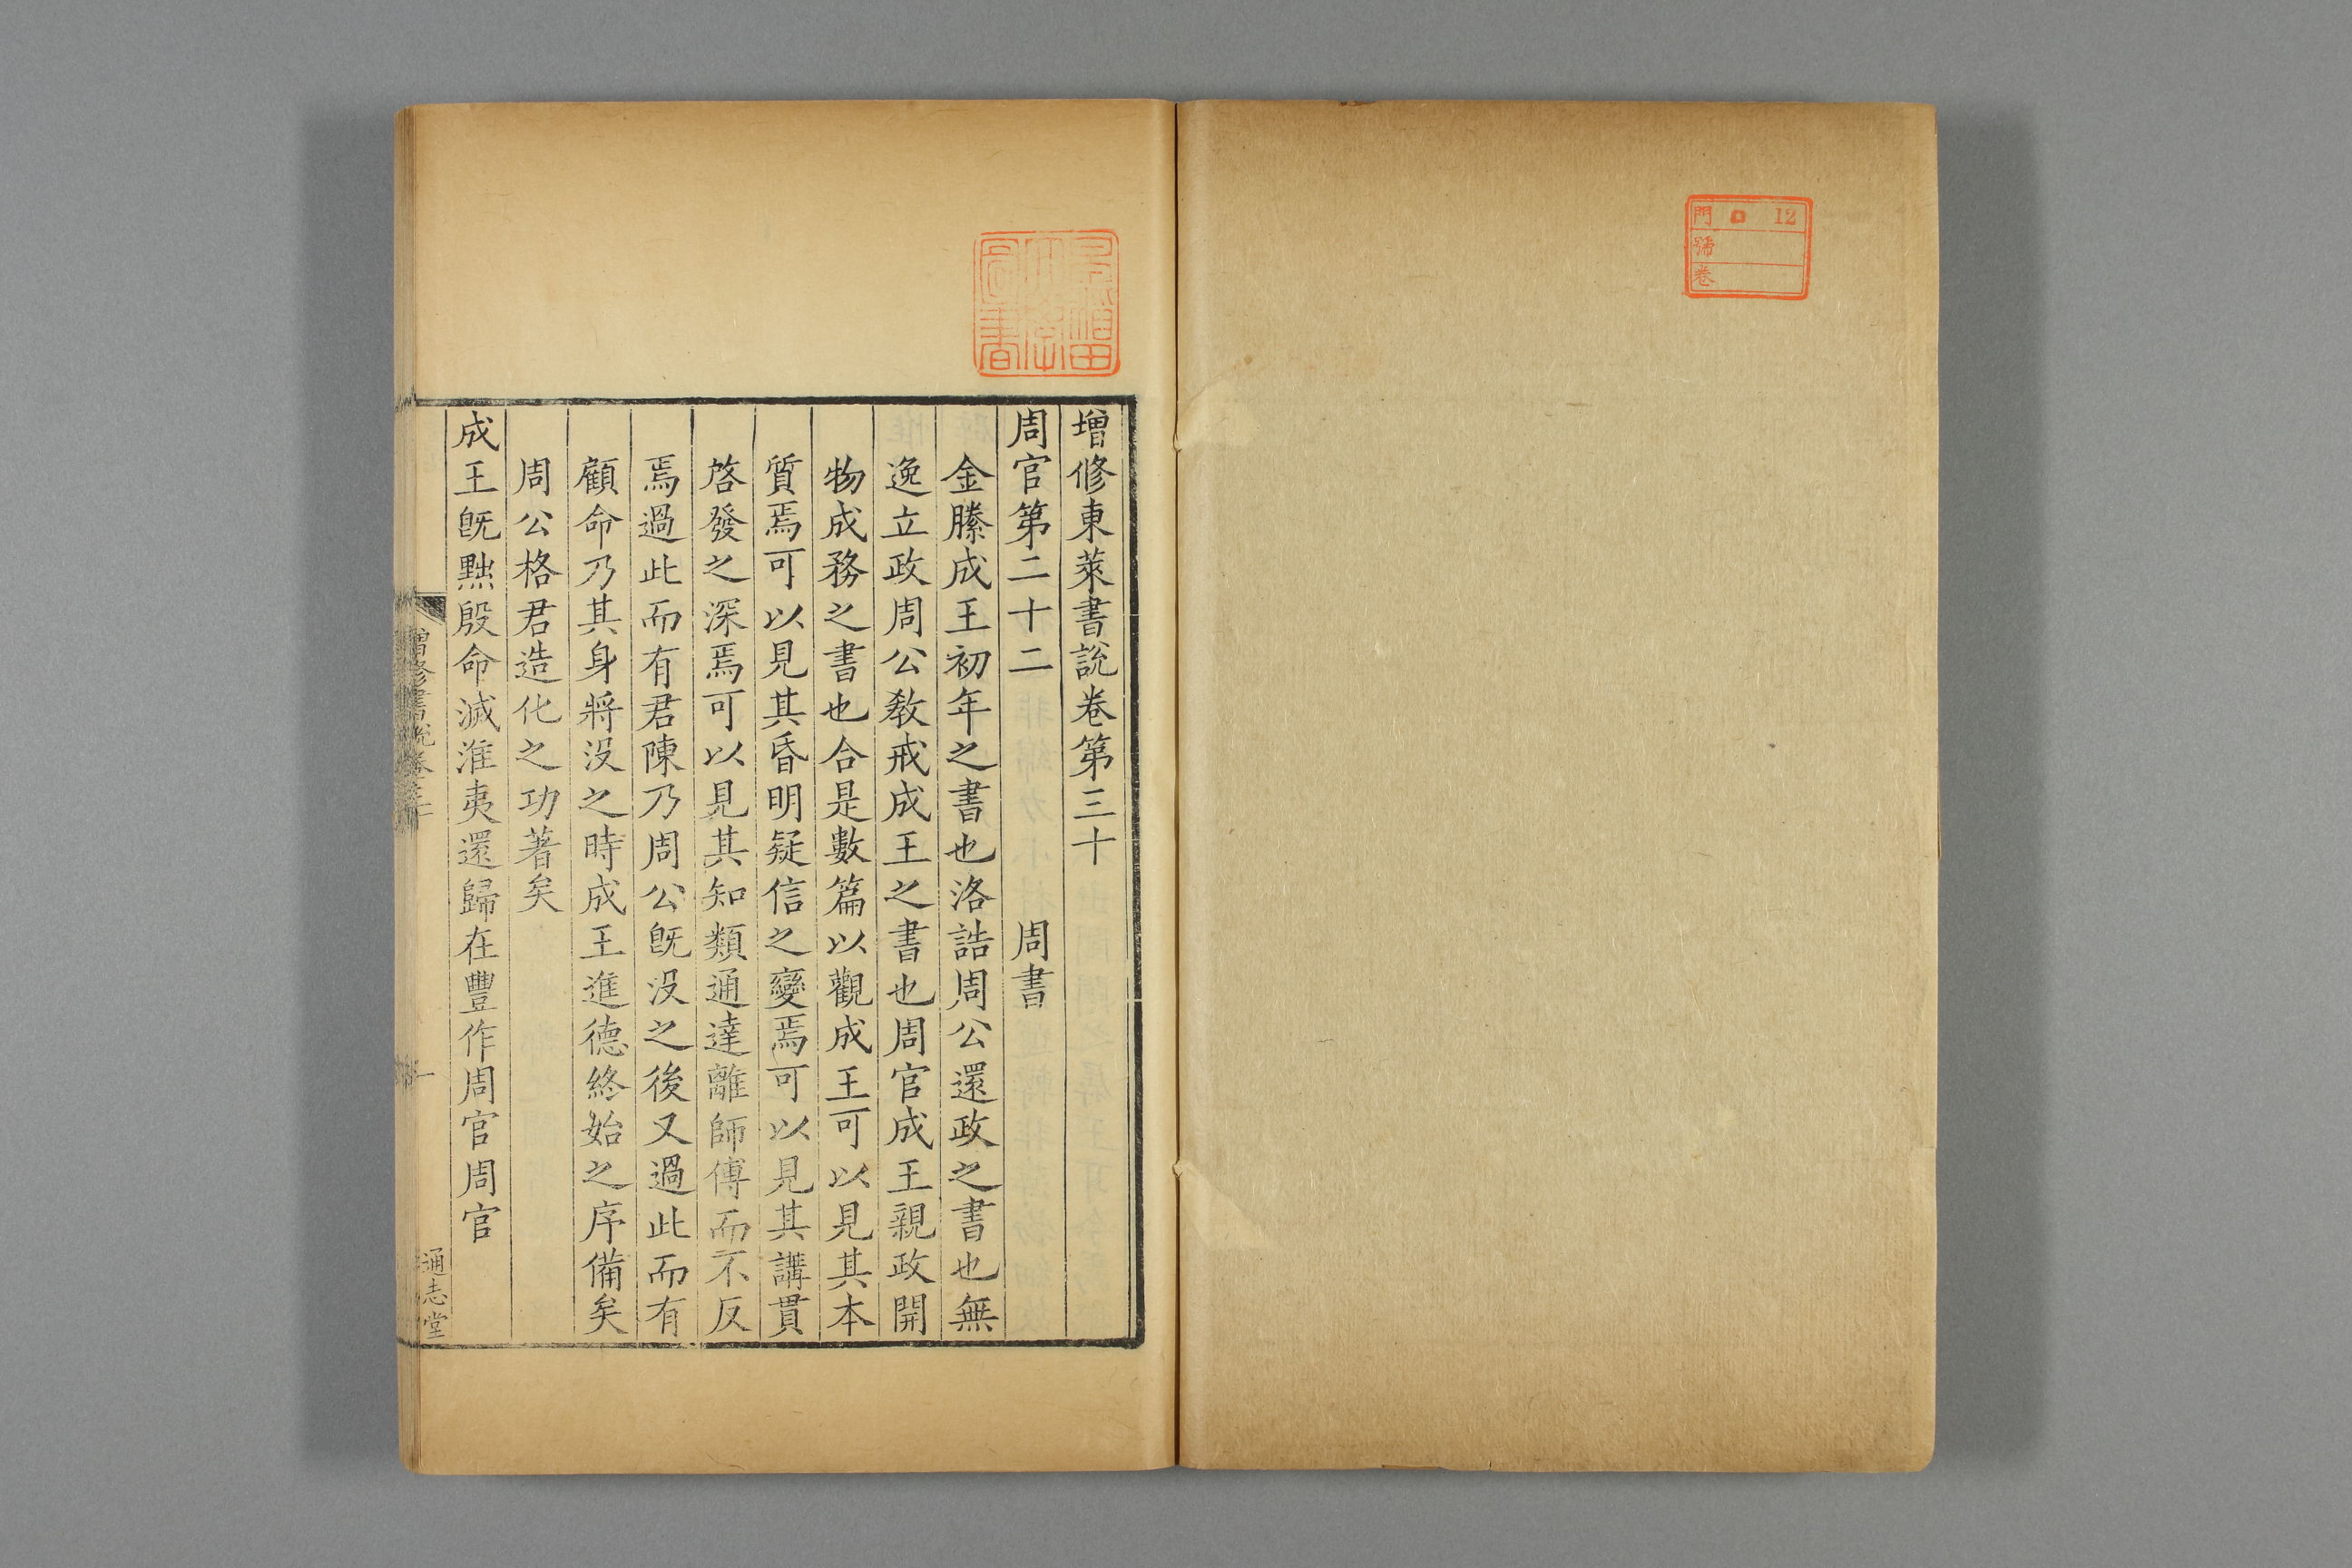 門 ロ 12
號
卷
早稲田大学図書
增修東萊書說卷第三十
周官第二十二 周書
金縢成王初年之書也洛誥周公還政之書也無
逸立政周公教戒成王之書也周官成王親政開
物成務之書也合是數篇以觀成王可以見其本
質焉可以見其昏明疑信之變焉可以見其講貫
啓發之深焉可以見其知類通達離師傅而不反
焉過此而有君陳乃周公旣没之後又過此而有
顧命乃其身將没之時成王進德終始之序備矣
周公格君造化之功著矣
成王旣黜殷命滅淮夷還歸在豐作周官周官
增修書說卷三十
一
通志堂